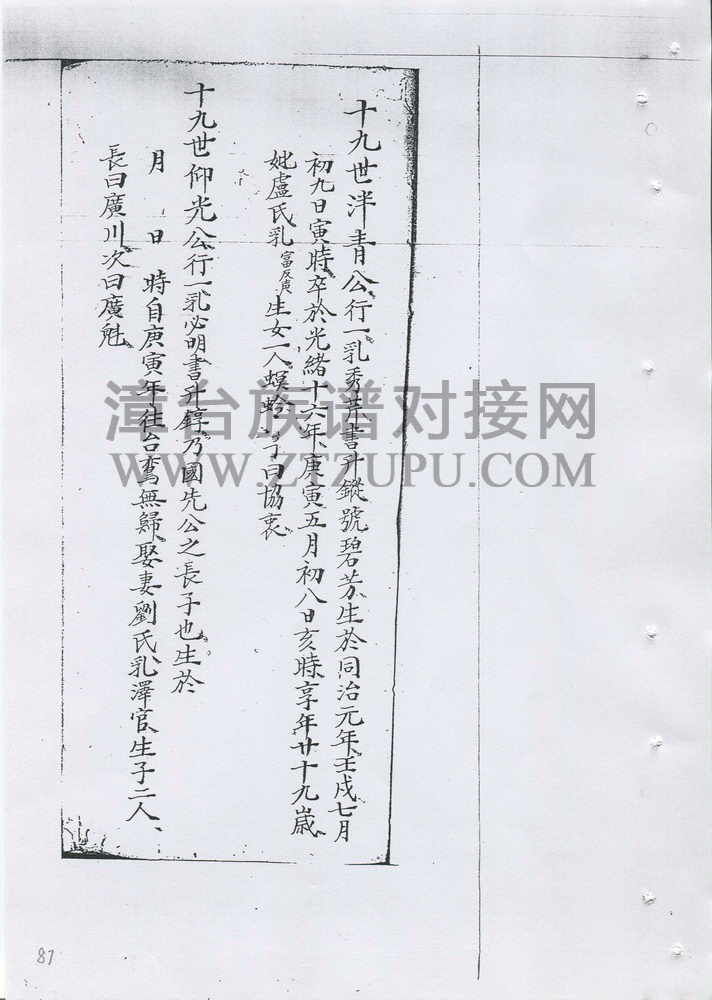 十九世泮青公行一乳秀芹書升鏦號碧芳生於同治元年壬戌七月
初九日寅時卒於光緒十六年庚寅五月初八日亥時享年廿十九歲
妣盧氏乳富反庚生女一人螟蛉子曰協衷
十九世仰光公行一乳必明書升錞乃國先公之長子也生於
月 日 時自庚寅年往台鸞無歸娶妻劉氏乳澤官生子二人
長曰廣川次曰廣魁
漳台族谱对接网
WWW.ZTZUPU.COM
87